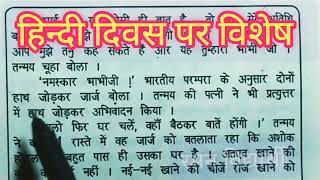 हिन्दी दिवस पर विशेष
आप मुझे तनु कह सकते हैं और यह तुम्हारी भाभी जी ।
तन्मय चूहा बोला ।
'नमस्कार भाभीजी !' भारतीय परम्परा के अनुसार दोनों
हाथ जोड़कर जार्ज बोला । तन्मय की पत्नी ने भी प्रत्युत्तर
में हाथ जोड़कर अभिवादन किया ।
फिर घर चलें, वहाँ बैठकर बातें होंगी ।' तन्मय
ने रास्ते में वह जार्ज को बतलाता रहा कि अशोक
बहुत पास ही उसका घर है । अतएव खाने की
नहीं । नई-नई खाने की चीजें रोज खाने को